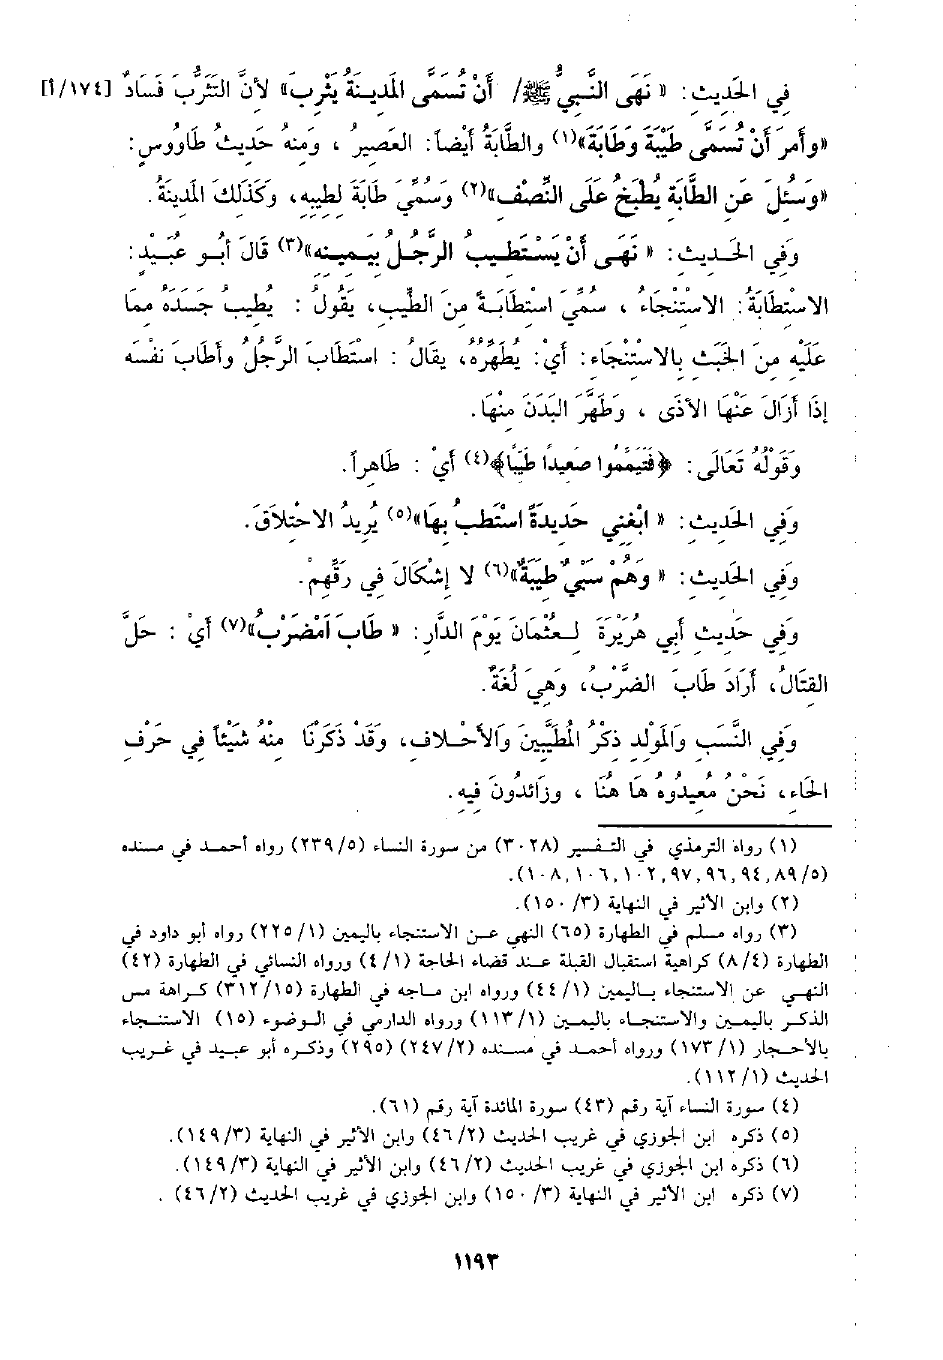 فِي الحَدِيثِ: « نَهَى النَّبِيُّ ﷺ/ أَنْ تُسَمَّى المَدِينَةُ يَثْرِبَ» لأنَّ التَثَرُّبَ فَسَادٌ [١٧٤/أ]
«وأَمرَ أَنْ تُسَمَّى طَيْبَةَ وَطَابَةَ»(١) والطَّابَةُ أَيْضاً: العَصِيرُ ، ومِنهُ حَدِيثُ طاوُوسٍ:
«وَسُئِلَ عَنِ الطَّابَةِ يُطْبَخُ عَلَى النِّصْفِ»(٢) وَسُمِّيَ طَابَةَ لِطِيبِهِ، وَكَذَلِكَ المَدِينَةُ.
وَفِي الحَـدِيثِ: « نَهَـى أَنْ يَسْـتَطِيـبَ الرَّجُـلُ بِيَـمِينِـهِ»(٣) قَالَ أَبُـو عُبَيْـدٍ:
الاسْتِطَابَةُ: الاسْتِنْجَاءُ ، سُمِّيَ اسْتِطَابَـةً مِنَ الطِّيبِ، يَقُولُ : يُطِيبُ جَسَدَهُ مِمَّا
عَلَيْهِ مِنَ الخَبَثِ بالاسْتِنْجَاءِ: أَيْ: يُطَهِّرُهُ، يقَالُ : اسْتَطَابَ الرَّجُلُ وأَطَابَ نَفْسَهُ
إذَا أَزَالَ عَنْهَا الأَذَى ، وَطَهَّرَ البَدَنَ مِنْهَا.
وَقَوْلُهُ تَعَالَى: ﴿فَتَيَمَّمُوا صَعِيدًا طَيِّبًا﴾(٤) أَيْ : طَاهِراً.
وَفِي الحَدِيثِ: « ابْغِنِي حَدِيدَةً اسْتَطِبْ بِهَا»(٥) يُرِيدُ الاحْتِلاَقَ.
وَفِي الحَدِيثِ: « وَهُمْ سَبْيٌ طِيَبَةٌ»(٦) لا إشْكَالَ فِي رِقِّهِمْ.
وَفِي حَدِيثِ أَبِي هُرَيْرَةَ لِـعُثْمَانَ يَوْمَ الدَّارِ: « طَابَ امْضَرْبُ»(٧) أَيْ : حَلَّ
القِتَالُ، أَرَادَ طَابَ الضَّرْبُ، وَهِيَ لُغَةٌ.
وَفِي النَّسَبِ وَالمَوْلِدِ ذِكْرُ المُطَيَّبِينَ وَالأَحْـلافِ، وَقَدْ ذَكَرْنَا مِنْهُ شَيْئاً فِي حَرْفِ
الحَاءِ، نَحْنُ مُعِيدُوهُ هَا هُنَا ، وزَائِدُونَ فِيهِ.
(١) رواه الترمذي في التـفـير (٣٠٢٨) من سورة النساء (٢٣٩/٥) رواه أحمـد في مسنده
(١٠٨,١٠٦,١٠٢,٩٧,٩٦,٩٤,٨٩/٥).
(٢) وابن الأثير في النهاية (١٥٠/٣).
(٣) رواه مسلم في الطهارة (٦٥) النهي عـن الاستنجاء باليمين (٢٢٥/١) رواه أبو داود في
الطهارة (٨/٤) كراهية استقبال القبلة عـند قضاء الحاجة (٤/١) ورواه النسائي في الطهارة (٤٢)
النهـي عن الاستنجاء بـاليمين (٤٤/١) ورواه ابن مـاجه في الطهارة (٣١٢/١٥) كـراهة مس
الذكـر باليمـين والاستنجـاء باليمين (١١٣/١) ورواه الدارمي في الـوضوء (١٥) الاستنـجاء
بالأحـجار (١٧٣/١) ورواه أحمـد في مسـنده (٢٤٧/٢) (٢٩٥) وذكـره أبو عبيـد في غريب
الحديث (١١٢/١).
(٤) سورة النساء آية رقم (٤٣) سورة المائدة آية رقم (٦١).
(٥) ذكره ابن الجوزي في غريب الحديث (٤٦/٢) وابن الأثير في النهاية (١٤٩/٣).
(٦) ذكره ابن الجوزي في غريب الحديث (٤٦/٢) وابن الأثير في النهاية (١٤٩/٣).
(٧) ذكره ابن الأثير في النهاية (١٥٠/٣) وابن الجوزي في غريب الحديث (٤٦/٢) .
١١٩٣